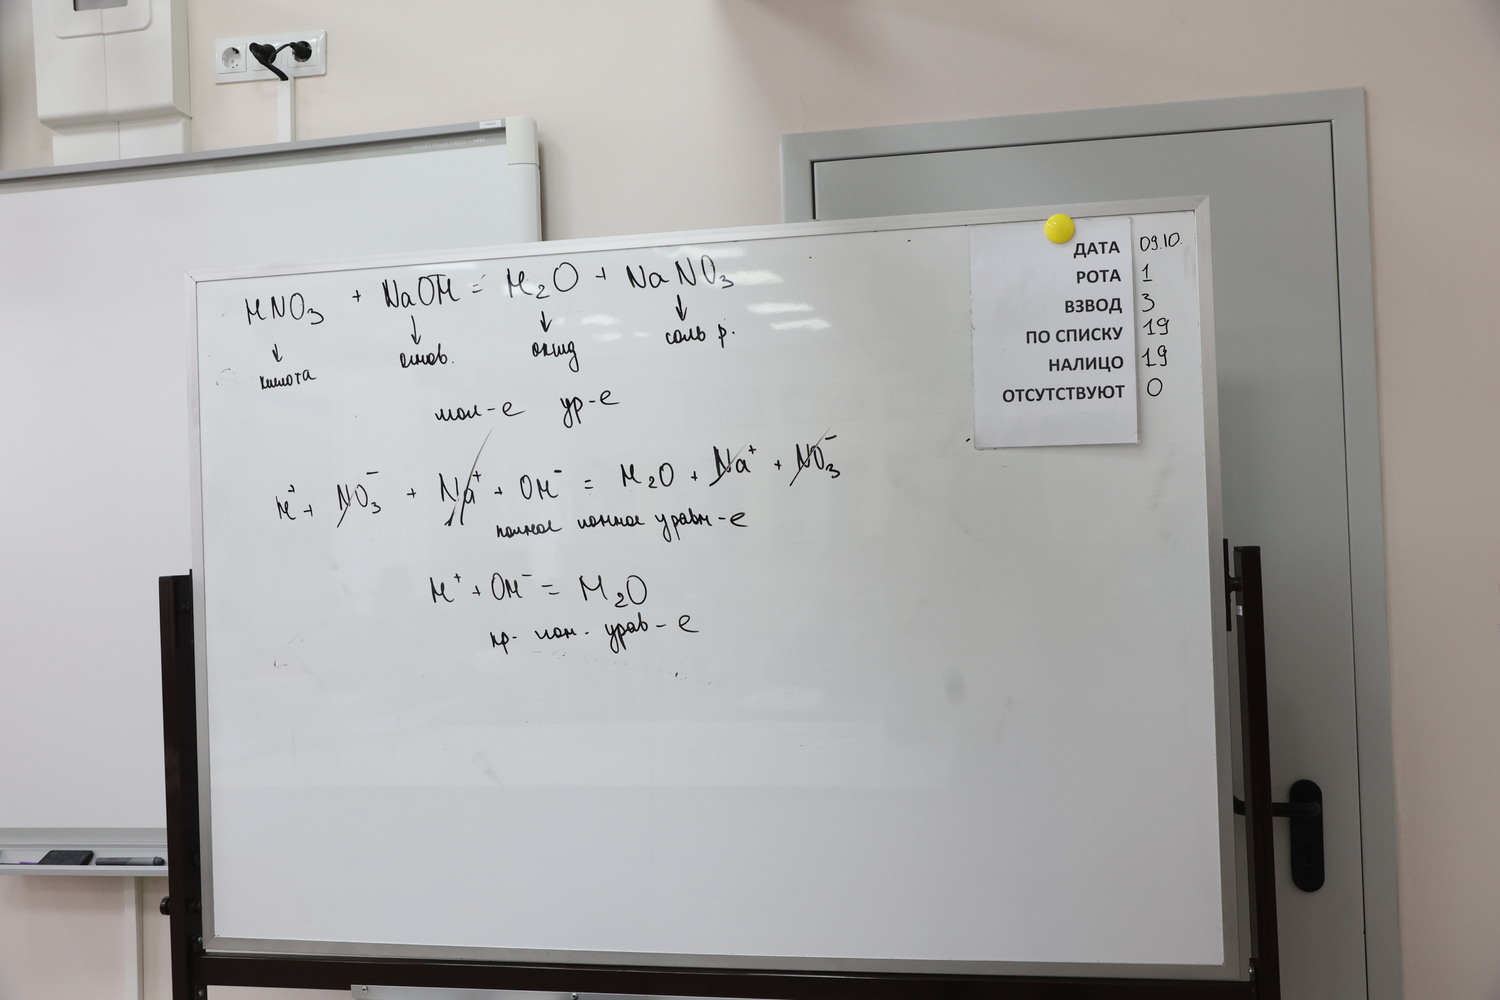 HNO₃ + NaOH = H₂O + NaNO₃
↓ ↓ ↓ ↓
кислота основ. оксид соль р.
мол-е ур-е
H⁺ + NO₃⁻ + Na⁺ + OH⁻ = H₂O + Na⁺ + NO₃⁻
полное ионное уравн-е
H⁺ + OH⁻ = H₂O
кр. ион. урав-е
ДАТА 09.10.
РОТА 1
ВЗВОД 3
ПО СПИСКУ 19
НАЛИЦО 19
ОТСУТСТВУЮТ 0